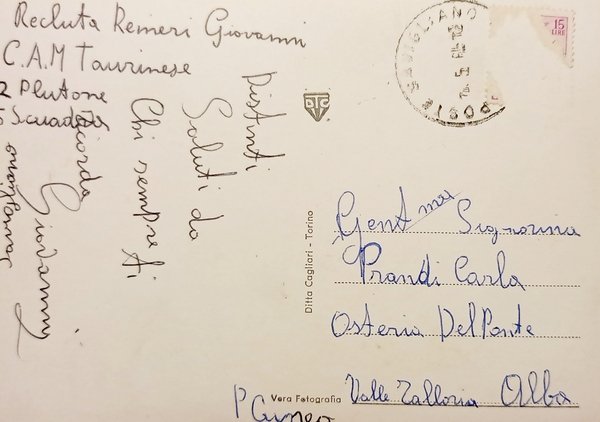 Recluta Remeri Giovanni
C.A.M Taurinese
2 Plutone
5 Scuadra
Savigliano
Distinti
Saluti da
Chi sempre ti
ricorda
Giovanni
SAVIGLIANO
POSTE
15
LIRE
DTC
Ditta Cagliari - Torino
Gent ma Signorina
Prandi Carla
Osteria Del Ponte
Valle Talloria Alba
P Cuneo
Vera Fotografia